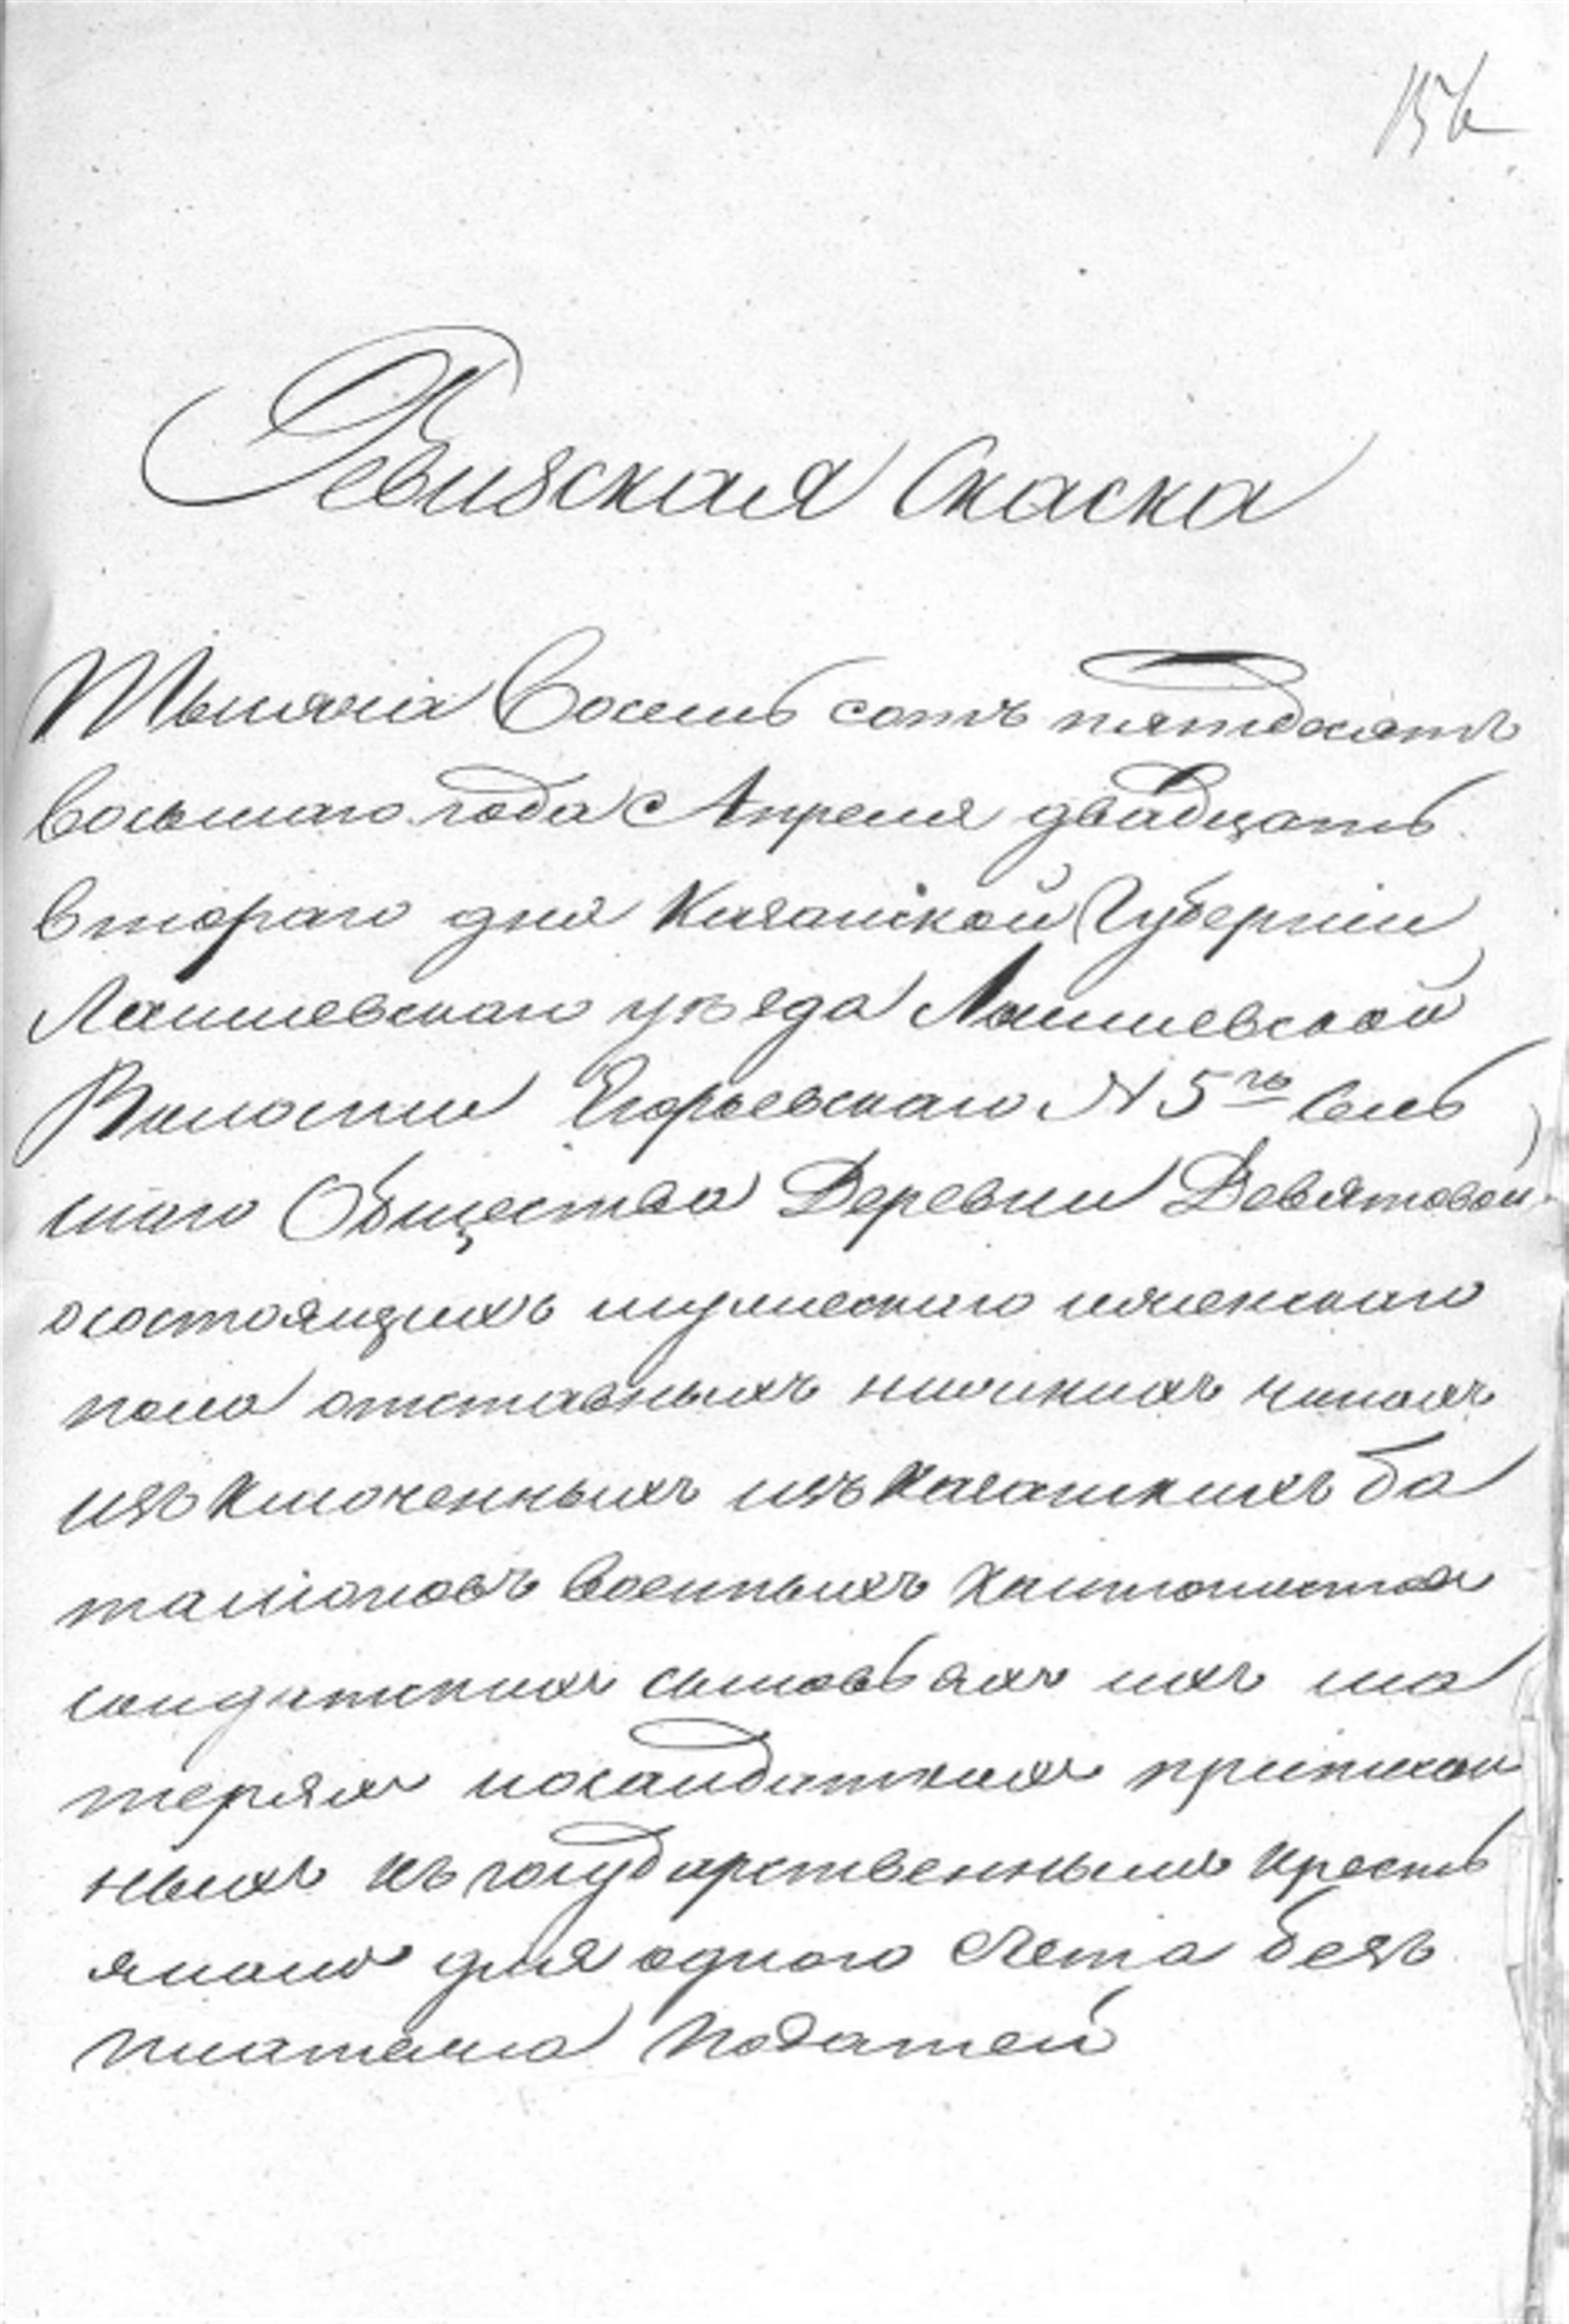 Ревизская Скаска
Тысяча Восемь сотъ пятдесятъ
Восьмаго года Апреля двадцать
Втораго дня Казанской Губерніи
Лаишевскаго уѣзда Лаишевской
Волости Егорьевскаго № 5го Сель
скаго Общества Деревни Девятовой
о состоящихъ мужескаго и женскаго
пола отставныхъ нижнихъ чинахъ
изъключенныхъ изъ Казанскихъ ба
таліоновъ Военныхъ Кантонистах
солдатскихъ сыновьяхъ ихъ ма
теряхъ и солдаткахъ приписан
ныхъ къ государственнымъ кресть
янамъ для одного счета безъ
платежа податей